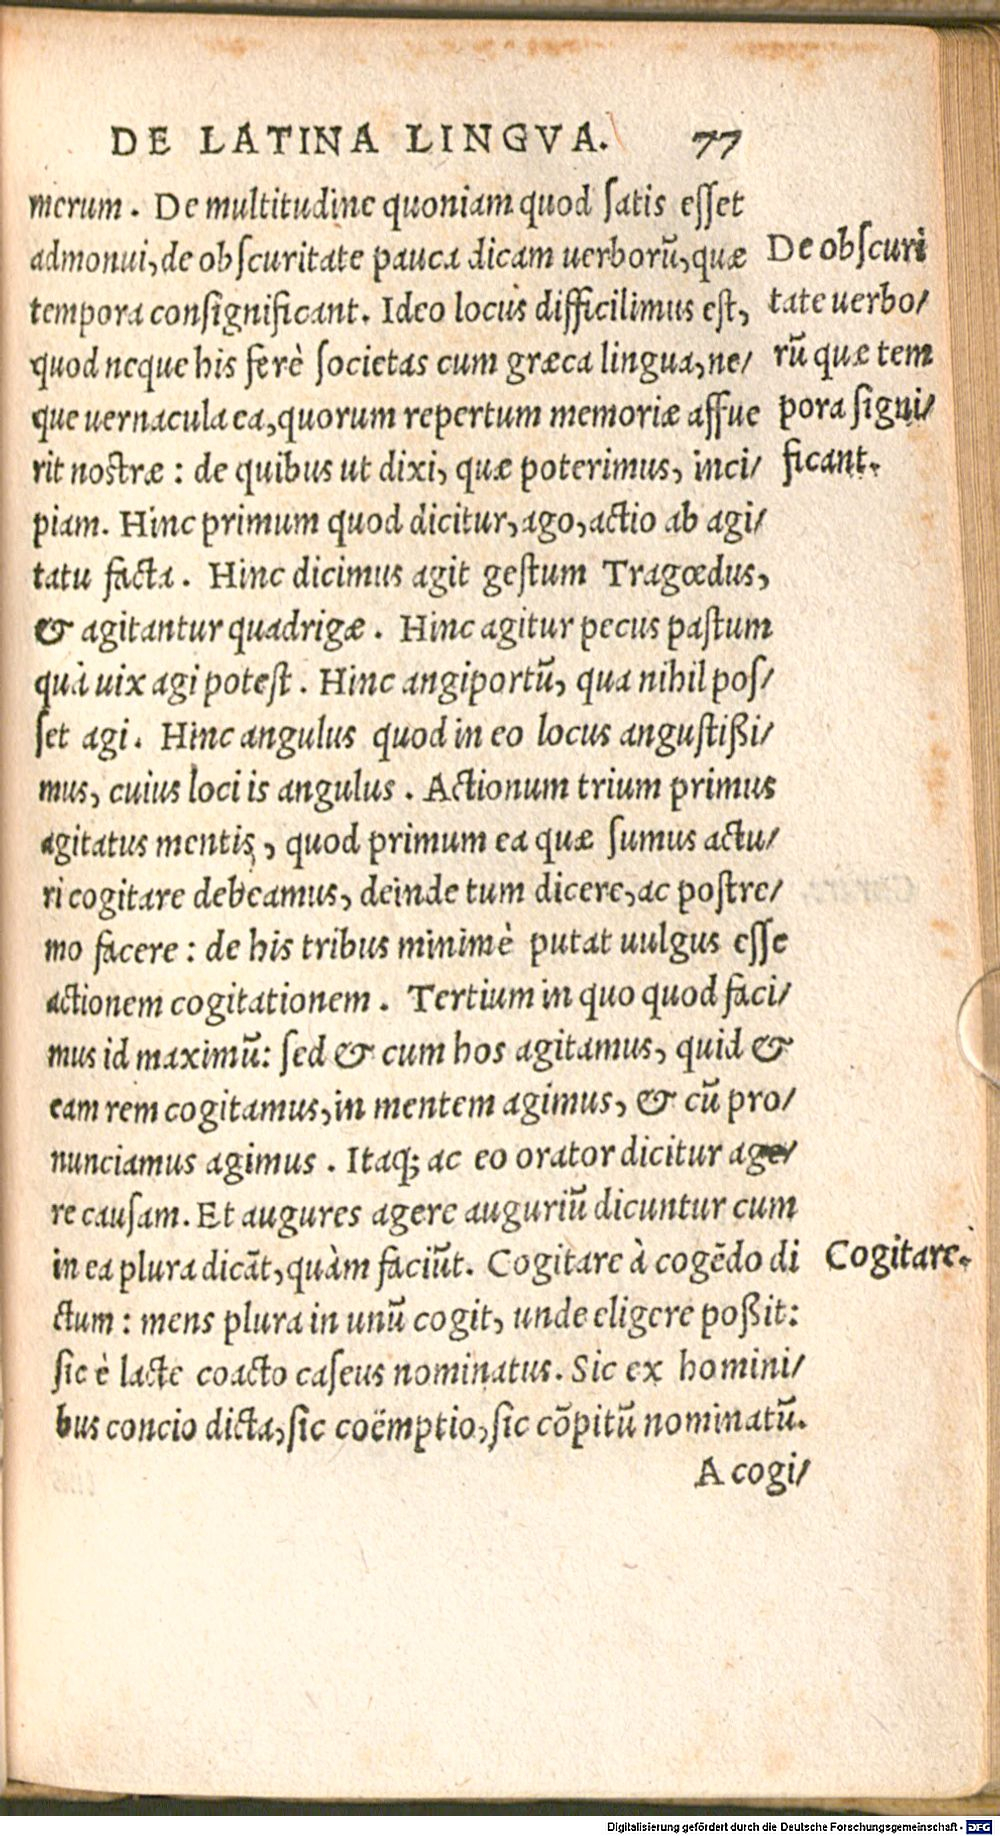 DE LATINA LINGVA. 77
merum. De multitudine quoniam quod satis esset
admonui, de obscuritate pauca dicam uerborũ, quæ
tempora consignificant. Ideo locus difficilimus est,
quod neque his ferè societas cum græca lingua, ne/
que uernacula ea, quorum repertum memoriæ affue
rit nostræ: de quibus ut dixi, quæ poterimus, inci/
piam. Hinc primum quod dicitur, ago, actio ab agi/
tatu facta. Hinc dicimus agit gestum Tragœdus,
& agitantur quadrigæ. Hinc agitur pecus pastum
quà uix agi potest. Hinc angiportũ, qua nihil pos/
set agi. Hinc angulus quod in eo locus angustißi/
mus, cuius loci is angulus. Actionum trium primus
agitatus mentis, quod primum ea quæ sumus actu/
ri cogitare debeamus, deinde tum dicere, ac postre/
mo facere: de his tribus minimè putat uulgus esse
actionem cogitationem. Tertium in quo quod faci/
mus id maximũ: sed & cum hos agitamus, quid &
eam rem cogitamus, in mentem agimus, & cũ pro/
nunciamus agimus. Itaq; ac eo orator dicitur age/
re causam. Et augures agere auguriũ dicuntur cum
in ea plura dicãt, quàm faciũt. Cogitare à cogẽdo di
ctum: mens plura in unũ cogit, unde eligere poßit:
sic è lacte coacto caseus nominatus. Sic ex homini/
bus concio dicta, sic coëmptio, sic cõpitũ nominatũ.
A cogi/
De obscuri
tate uerbo/
rũ quæ tem
pora signi/
ficant.
Cogitare.
Digitalisierung gefördert durch die Deutsche Forschungsgemeinschaft - DFG